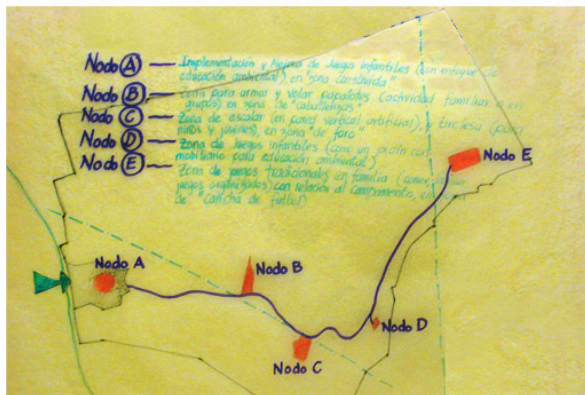 Nodo A — Implementación y Mejora de Juegos infantiles (con enfoque de
educación ambiental), en "zona construida"
Nodo B — Zona para armar y volar papalotes (actividad familiar o en
grupos) en zona de
Nodo C — Zona de escalar (en pared vertical artificial), y tirolesa (para
niños y jóvenes), en zona "de foro"
Nodo D — Zona de Juegos infantiles (como un jardín con
mobiliario para educación ambiental)
Nodo E — Zona de juegos tradicionales en familia (
juegos organizados) con relación al campamento, en
de "cancha de futbol"
Nodo E
Nodo A
Nodo B
Nodo D
Nodo C